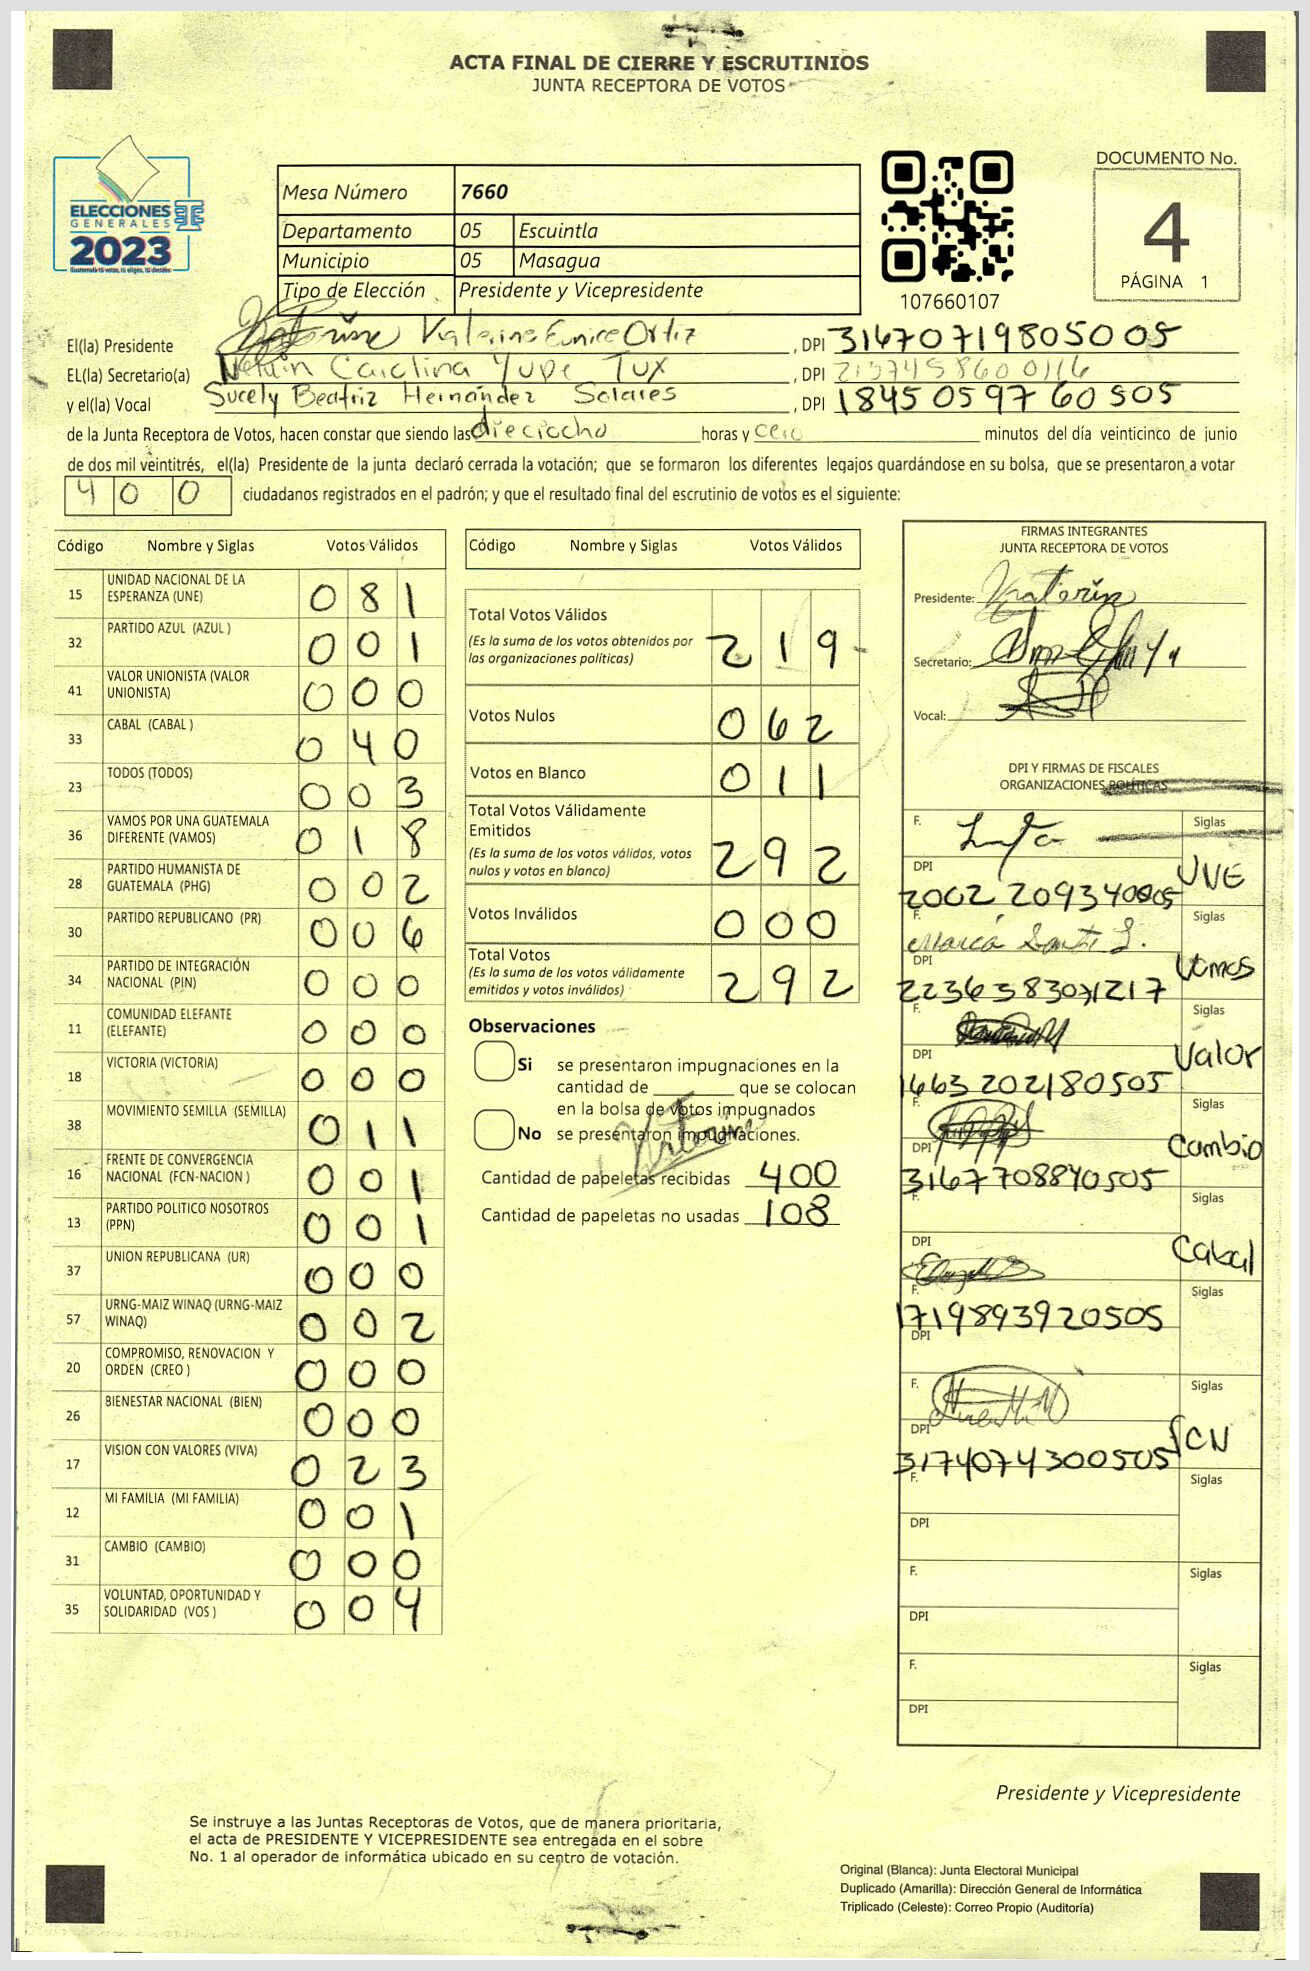 ACTA FINAL DE CIERRE Y ESCRUTINIOS
JUNTA RECEPTORA DE VOTOS
ELECCIONES
GENERALES
2023
Mesa Número 7660
Departamento 05 Escuintla
Municipio 05 Masagua
Tipo de Elección Presidente y Vicepresidente
107660107
DOCUMENTO No.
4
PÁGINA 1
El(la) Presidente Katerine Eunice Ortiz , DPI 3167071980505
EL(la) Secretario(a) Carolina Yupe Tux , DPI
y el(la) Vocal Sucely Beatriz Hernández Solares , DPI 1845059760505
de la Junta Receptora de Votos, hacen constar que siendo las dieciocho horas y cero minutos del día veinticinco de junio
de dos mil veintitrés, el(la) Presidente de la junta declaró cerrada la votación; que se formaron los diferentes legajos quardándose en su bolsa, que se presentaron a votar
400 ciudadanos registrados en el padrón; y que el resultado final del escrutinio de votos es el siguiente:
Código Nombre y Siglas Votos Válidos
15 UNIDAD NACIONAL DE LA ESPERANZA (UNE) 081
32 PARTIDO AZUL (AZUL ) 001
41 VALOR UNIONISTA (VALOR UNIONISTA) 000
33 CABAL (CABAL ) 040
23 TODOS (TODOS) 003
36 VAMOS POR UNA GUATEMALA DIFERENTE (VAMOS) 018
28 PARTIDO HUMANISTA DE GUATEMALA (PHG) 002
30 PARTIDO REPUBLICANO (PR) 006
34 PARTIDO DE INTEGRACIÓN NACIONAL (PIN) 000
11 COMUNIDAD ELEFANTE (ELEFANTE) 000
18 VICTORIA (VICTORIA) 000
38 MOVIMIENTO SEMILLA (SEMILLA) 011
16 FRENTE DE CONVERGENCIA NACIONAL (FCN-NACION ) 001
13 PARTIDO POLITICO NOSOTROS (PPN) 001
37 UNION REPUBLICANA (UR) 000
57 URNG-MAIZ WINAQ (URNG-MAIZ WINAQ) 002
20 COMPROMISO, RENOVACION Y ORDEN (CREO ) 000
26 BIENESTAR NACIONAL (BIEN) 000
17 VISION CON VALORES (VIVA) 023
12 MI FAMILIA (MI FAMILIA) 001
31 CAMBIO (CAMBIO) 000
35 VOLUNTAD, OPORTUNIDAD Y SOLIDARIDAD (VOS ) 004
Código Nombre y Siglas Votos Válidos
Total Votos Válidos
(Es la suma de los votos obtenidos por
las organizaciones políticas) 219
Votos Nulos 062
Votos en Blanco 011
Total Votos Válidamente
Emitidos
(Es la suma de los votos válidos, votos
nulos y votos en blanco) 292
Votos Inválidos 000
Total Votos
(Es la suma de los votos válidamente
emitidos y votos inválidos) 292
Observaciones
Si se presentaron impugnaciones en la
cantidad de ________ que se colocan
en la bolsa de votos impugnados
No se presentaron impugnaciones.
Katerine
Cantidad de papeletas recibidas 400
Cantidad de papeletas no usadas 108
FIRMAS INTEGRANTES
JUNTA RECEPTORA DE VOTOS
Presidente: Katerine
Secretario:
Vocal:
DPI Y FIRMAS DE FISCALES
ORGANIZACIONES POLÍTICAS
F. Siglas
DPI UNE
2002 20934 0505
F. Siglas
DPI Vamos
2236383071217
F. Siglas
DPI Valor
1663 202180505
F. Siglas
DPI Cambio
3167708840505
F. Siglas
DPI Cabal
F. Siglas
1719893920505
DPI
F. Siglas
DPI FCN
3174074300505
F. Siglas
DPI
F. Siglas
DPI
F. Siglas
DPI
Presidente y Vicepresidente
Se instruye a las Juntas Receptoras de Votos, que de manera prioritaria,
el acta de PRESIDENTE Y VICEPRESIDENTE sea entregada en el sobre
No. 1 al operador de informática ubicado en su centro de votación.
Original (Blanca): Junta Electoral Municipal
Duplicado (Amarilla): Dirección General de Informática
Triplicado (Celeste): Correo Propio (Auditoría)